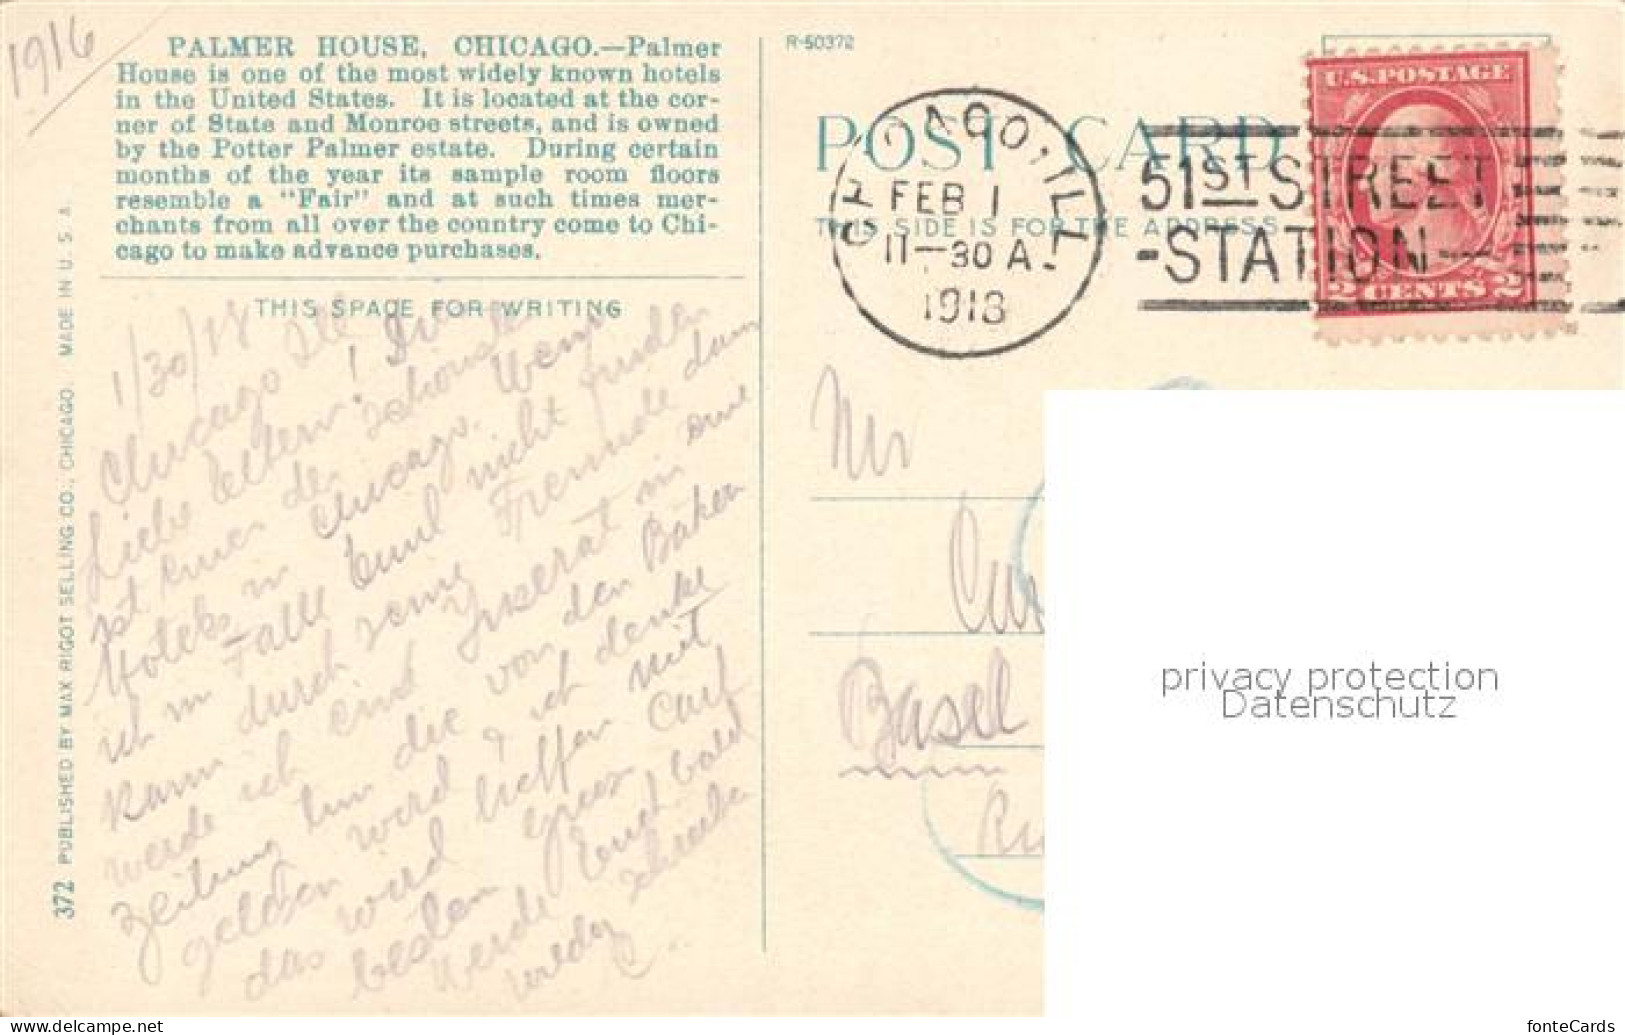 1916
PALMER HOUSE, CHICAGO.—Palmer
House is one of the most widely known hotels
in the United States. It is located at the cor-
ner of State and Monroe streets, and is owned
by the Potter Palmer estate. During certain
months of the year its sample room floors
resemble a "Fair" and at such times mer-
chants from all over the country come to Chi-
cago to make advance purchases.
THIS SPACE FOR WRITING
1/30/18
Chicago Ill
Liebe Eltern!
ist eines der schönsten
Hotels in Chicago. Wenn
ich im Falle Emil nicht finden
kann durch seine Freunde dann
werde ich ein Inserat in eine
Zeitung tun die von den Baken
gelesen werd & ich denke
das werd helfen mit
besten Grus Carl
Werde Euch bald
wieder schreiben
C.
372 PUBLISHED BY MAX RIGOT SELLING CO., CHICAGO MADE IN U. S. A.
R-50372
POST CARD
THIS SIDE IS FOR THE ADDRESS
CHICAGO, ILL
FEB 1
11-30 A.
1918
51ST STREET
-STATION-
U.S. POSTAGE
2 CENTS 2
Mr
Basel
privacy protection
Datenschutz
www.delcampe.net
fonteCards